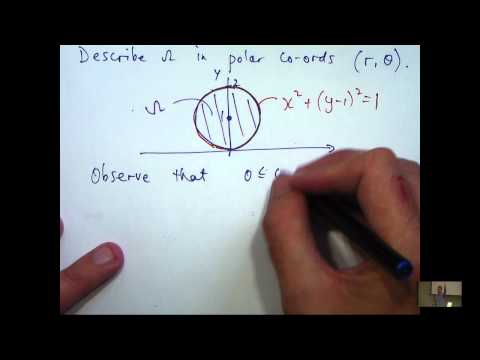 Describe Ω in polar co-ords (r, θ).
y
2
Ω
x² + (y-1)² = 1
Observe that 0 ≤